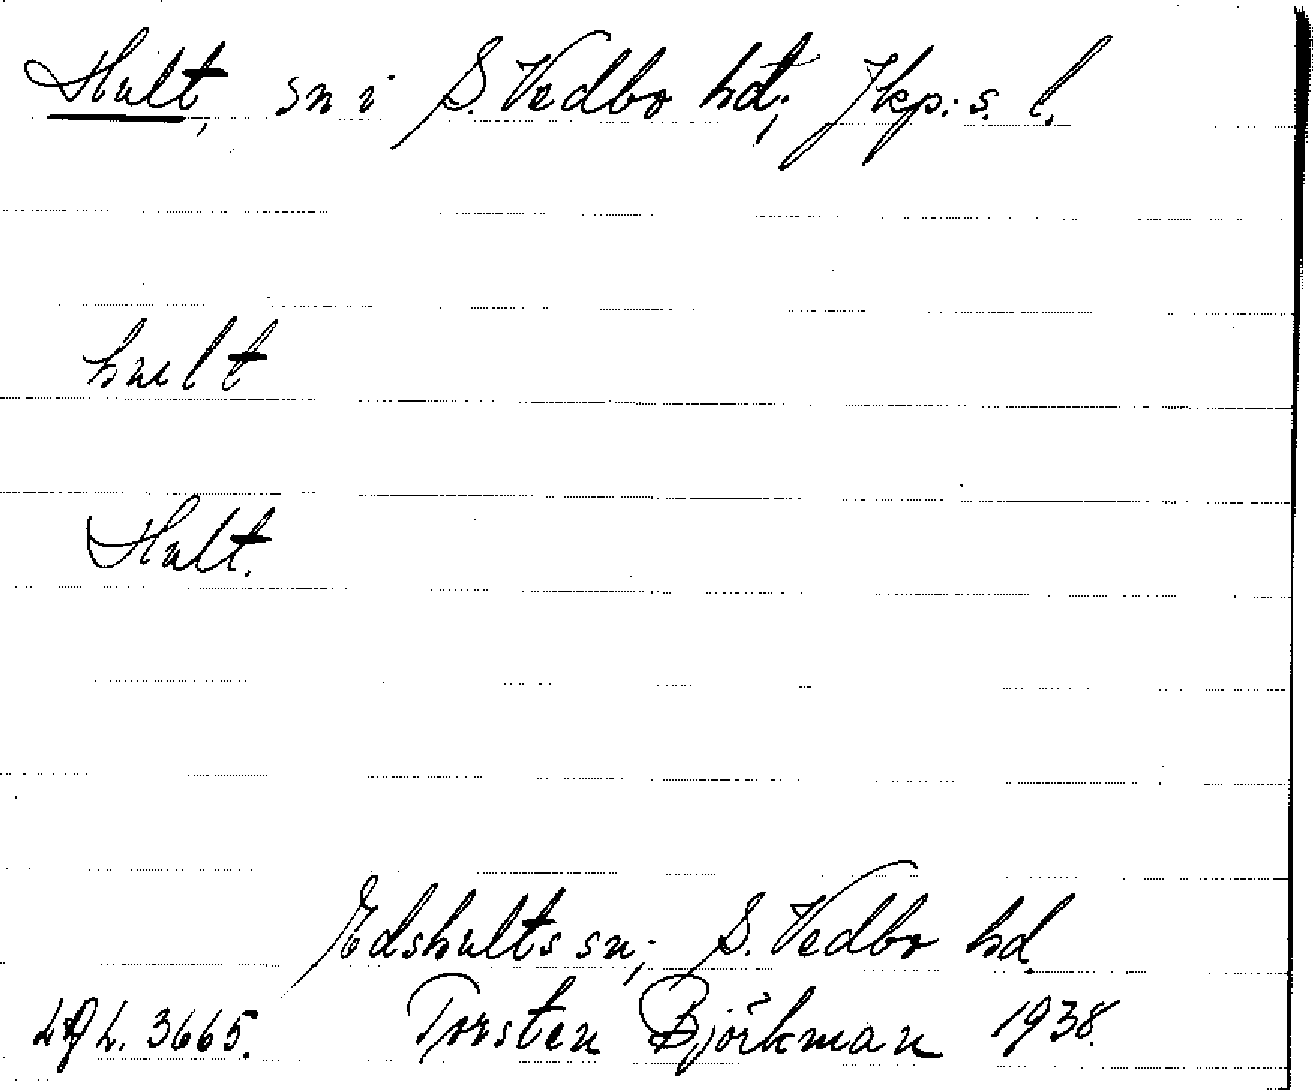 Hult, sn i S. Vedbo hd; Jkp:s. l.
hult
Hult.
Edshults sn; S. Vedbo hd.
3665. Torsten Björkman 1938.